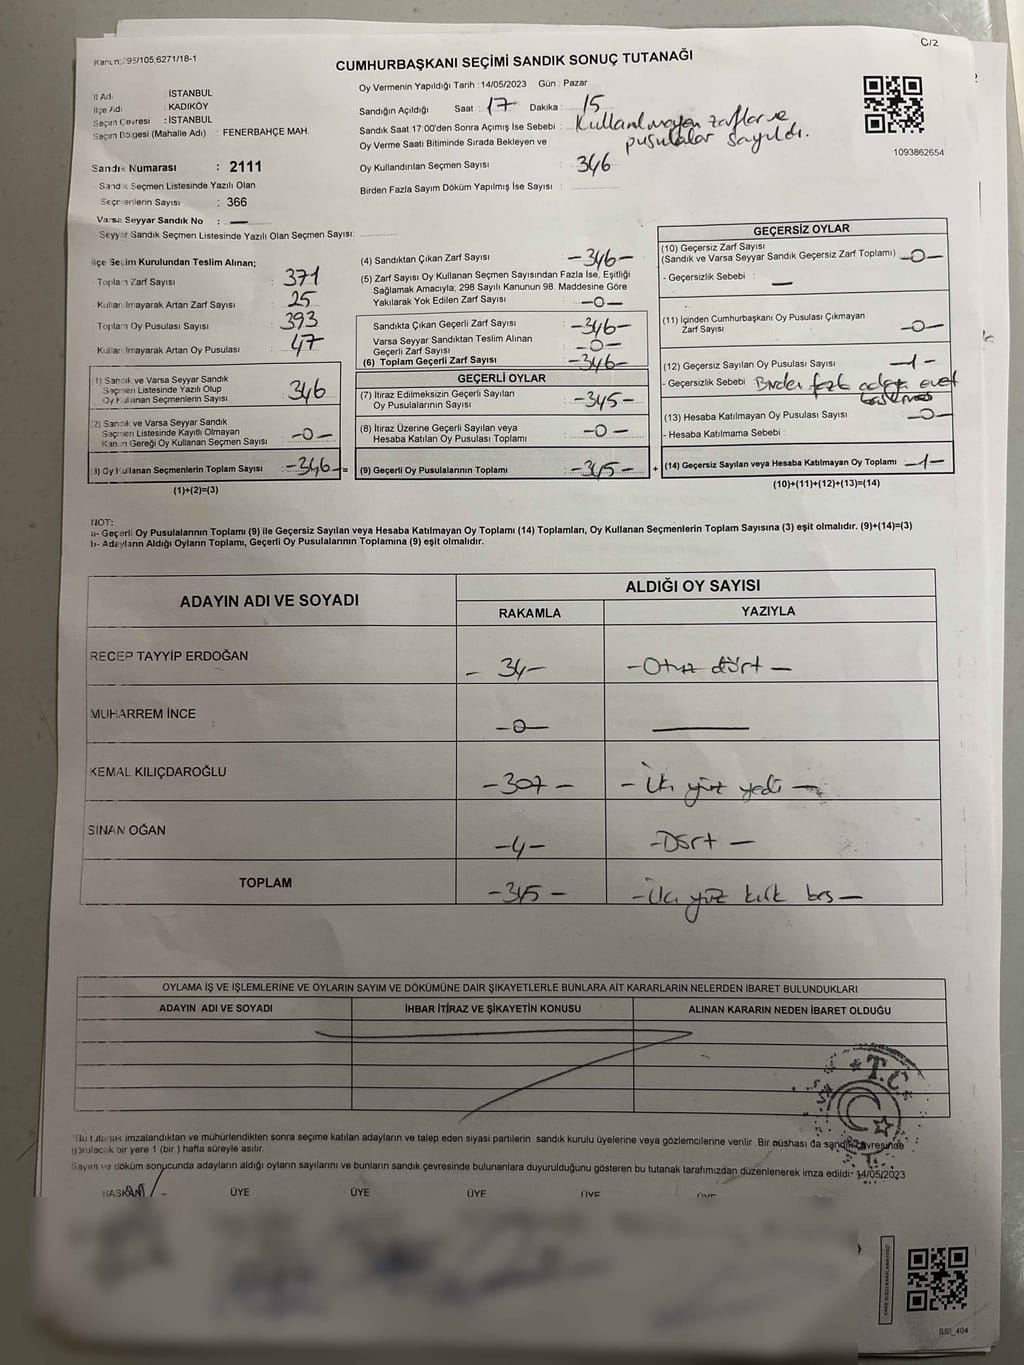 C/2
Kanun;295/105,6271/18-1
CUMHURBAŞKANI SEÇİMİ SANDIK SONUÇ TUTANAĞI
İl Adı : İSTANBUL
İlçe Adı : KADIKÖY
Seçim Çevresi : İSTANBUL
Seçim Bölgesi (Mahalle Adı) : FENERBAHÇE MAH.
Sandık Numarası : 2111
Sandık Seçmen Listesinde Yazılı Olan
Seçmenlerin Sayısı : 366
Varsa Seyyar Sandık No : —
Seyyar Sandık Seçmen Listesinde Yazılı Olan Seçmen Sayısı:
Oy Vermenin Yapıldığı Tarih : 14/05/2023 Gün : Pazar
Sandığın Açıldığı Saat : 17 Dakika : 15
Sandık Saat 17:00'den Sonra Açımış İse Sebebi : Kullanılmayan zarflar ve
pusulalar sayıldı.
Oy Verme Saati Bitiminde Sırada Bekleyen ve
Oy Kullandırılan Seçmen Sayısı : 346
Birden Fazla Sayım Döküm Yapılmış İse Sayısı :
1093862654
İlçe Seçim Kurulundan Teslim Alınan;
Toplam Zarf Sayısı : 371
Kullanılmayarak Artan Zarf Sayısı : 25
Toplam Oy Pusulası Sayısı : 393
Kullanılmayarak Artan Oy Pusulası : 47
1) Sandık ve Varsa Seyyar Sandık
Seçmen Listesinde Yazılı Olup
Oy Kullanan Seçmenlerin Sayısı : 346
2) Sandık ve Varsa Seyyar Sandık
Seçmen Listesinde Kayıtlı Olmayan
Kanun Gereği Oy Kullanan Seçmen Sayısı : -0-
3) Oy Kullanan Seçmenlerin Toplam Sayısı : -346- =
(1)+(2)=(3)
(4) Sandıktan Çıkan Zarf Sayısı : -346-
(5) Zarf Sayısı Oy Kullanan Seçmen Sayısından Fazla İse, Eşitliği
Sağlamak Amacıyla, 298 Sayılı Kanunun 98. Maddesine Göre
Yakılarak Yok Edilen Zarf Sayısı : -0-
Sandıkta Çıkan Geçerli Zarf Sayısı : -346-
Varsa Seyyar Sandıktan Teslim Alınan
Geçerli Zarf Sayısı : -0-
(6) Toplam Geçerli Zarf Sayısı : -346-
GEÇERLİ OYLAR
(7) İtiraz Edilmeksizin Geçerli Sayılan
Oy Pusulalarının Sayısı : -345-
(8) İtiraz Üzerine Geçerli Sayılan veya
Hesaba Katılan Oy Pusulası Toplamı : -0-
(9) Geçerli Oy Pusulalarının Toplamı : -345- +
GEÇERSİZ OYLAR
(10) Geçersiz Zarf Sayısı
(Sandık ve Varsa Seyyar Sandık Geçersiz Zarf Toplamı) : -0-
- Geçersizlik Sebebi : —
(11) İçinden Cumhurbaşkanı Oy Pusulası Çıkmayan
Zarf Sayısı : -0-
(12) Geçersiz Sayılan Oy Pusulası Sayısı : -1-
- Geçersizlik Sebebi : Birden fazla adaya evet
(13) Hesaba Katılmayan Oy Pusulası Sayısı : -0-
- Hesaba Katılmama Sebebi :
(14) Geçersiz Sayılan veya Hesaba Katılmayan Oy Toplamı : -1-
(10)+(11)+(12)+(13)=(14)
NOT:
a- Geçerli Oy Pusulalarının Toplamı (9) ile Geçersiz Sayılan veya Hesaba Katılmayan Oy Toplamı (14) Toplamları, Oy Kullanan Seçmenlerin Toplam Sayısına (3) eşit olmalıdır. (9)+(14)=(3)
b- Adayların Aldığı Oyların Toplamı, Geçerli Oy Pusulalarının Toplamına (9) eşit olmalıdır.
ADAYIN ADI VE SOYADI ALDIĞI OY SAYISI
RAKAMLA YAZIYLA
RECEP TAYYİP ERDOĞAN - 34 - - Otuz dört -
MUHARREM İNCE - 0 - —
KEMAL KILIÇDAROĞLU - 307 - - İki yüz yedi -
SİNAN OĞAN - 4 - - Dört -
TOPLAM - 345 - - İki yüz kırk beş -
OYLAMA İŞ VE İŞLEMLERİNE VE OYLARIN SAYIM VE DÖKÜMÜNE DAİR ŞİKAYETLERLE BUNLARA AİT KARARLARIN NELERDEN İBARET BULUNDUKLARI
ADAYIN ADI VE SOYADI İHBAR İTİRAZ VE ŞİKAYETİN KONUSU ALINAN KARARIN NEDEN İBARET OLDUĞU
T.C.
Bu tutanak imzalandıktan ve mühürlendikten sonra seçime katılan adayların ve talep eden siyasi partilerin sandık kurulu üyelerine veya gözlemcilerine verilir. Bir nüshası da sandık çevresinde
görülecek bir yere 1 (bir ) hafta süreyle asılır.
Sayım ve döküm sonucunda adayların aldığı oyların sayılarını ve bunların sandık çevresinde bulunanlara duyurulduğunu gösteren bu tutanak tarafımızdan düzenlenerek imza edildi. 14/05/2023
BAŞKAN ÜYE ÜYE ÜYE ÜYE ÜYE
SSI_404